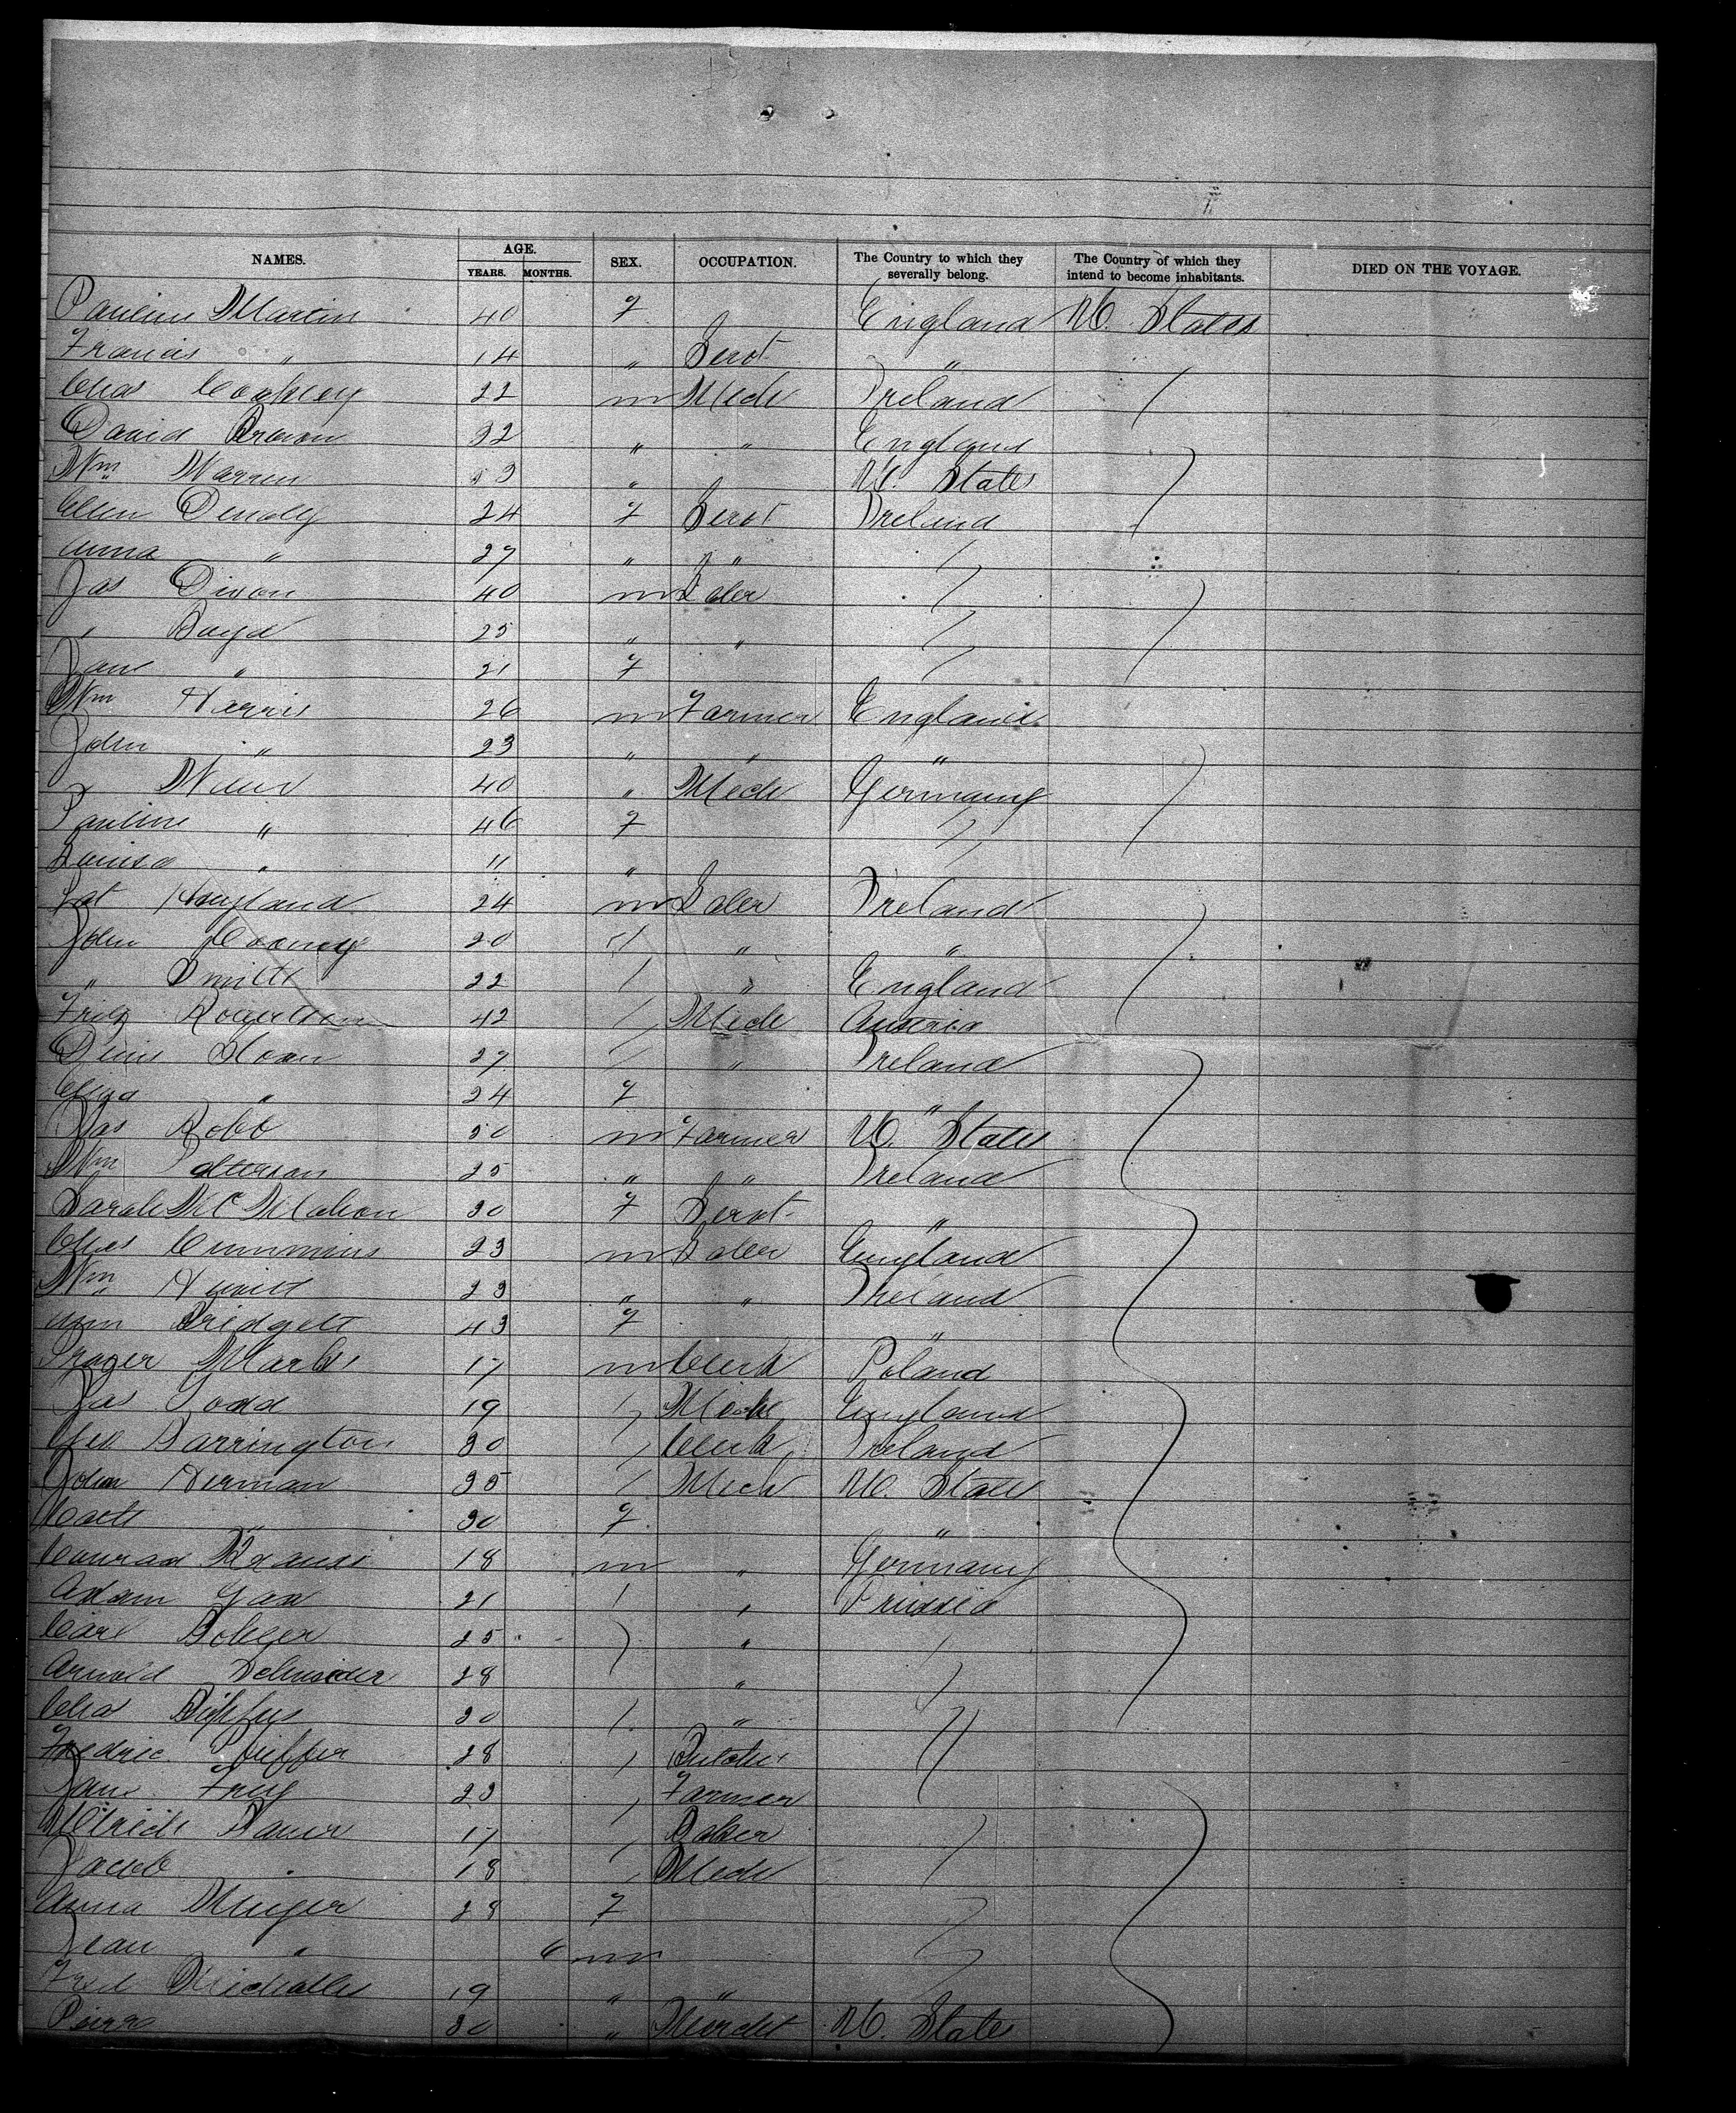 NAMES. AGE. YEARS. MONTHS. SEX. OCCUPATION. The Country to which they severally belong. The Country of which they intend to become inhabitants. DIED ON THE VOYAGE.
Pauline Martin 40 F England U. States
Francis " 14 " Servt "
Chas Coakley 22 m Mech Ireland
David Brown 32 " " England
Wm Warren 33 " U. States
Ellen Dendy 24 F Servt Ireland
Anna " 27 " " "
Jas Dixon 40 m Laber
" Boyd 25 " "
Jane " 21 F
Wm Harris 26 m Farmer England
John " 23 " " "
" 40 " Mech Germany
Pauline " 46 F
Louisa " 11 "
Pat Hayland 24 m Laber Ireland
John Cooney 20 " " "
" Smith 22 " England
42 Mech Austria
Denis Sloan 27 " Ireland
Eliza " 24 F "
Jas Robb 50 m Farmer U. States
Wm Patterson 25 " " Ireland
Sarah McMahon 30 F Servt "
Chas Cummins 23 m Laber England
Wm Hewitt 23 " " Ireland
Ann Bridgett 43 F "
Prager Marks 17 m Clerk Poland
Jas Todd 19 Mech England
Geo Barrington 30 Clerk Ireland
John Herman 35 Mech U. States
Cath " 30 F "
Conrad Krauss 18 m " Germany
Adam Gax 21 " Prussia
Carl 25 "
Arnold Schneider 28 "
Chas 30 "
Fredric Pfeffer 28 Butcher
Frey 23 Farmer
Ulrich Bauer 17 Baker
Jacob " 18 Mech
Anna Meyer 28 F
Jean " 6 m
Fred 19 " "
Pierre 30 " Mercht U. States